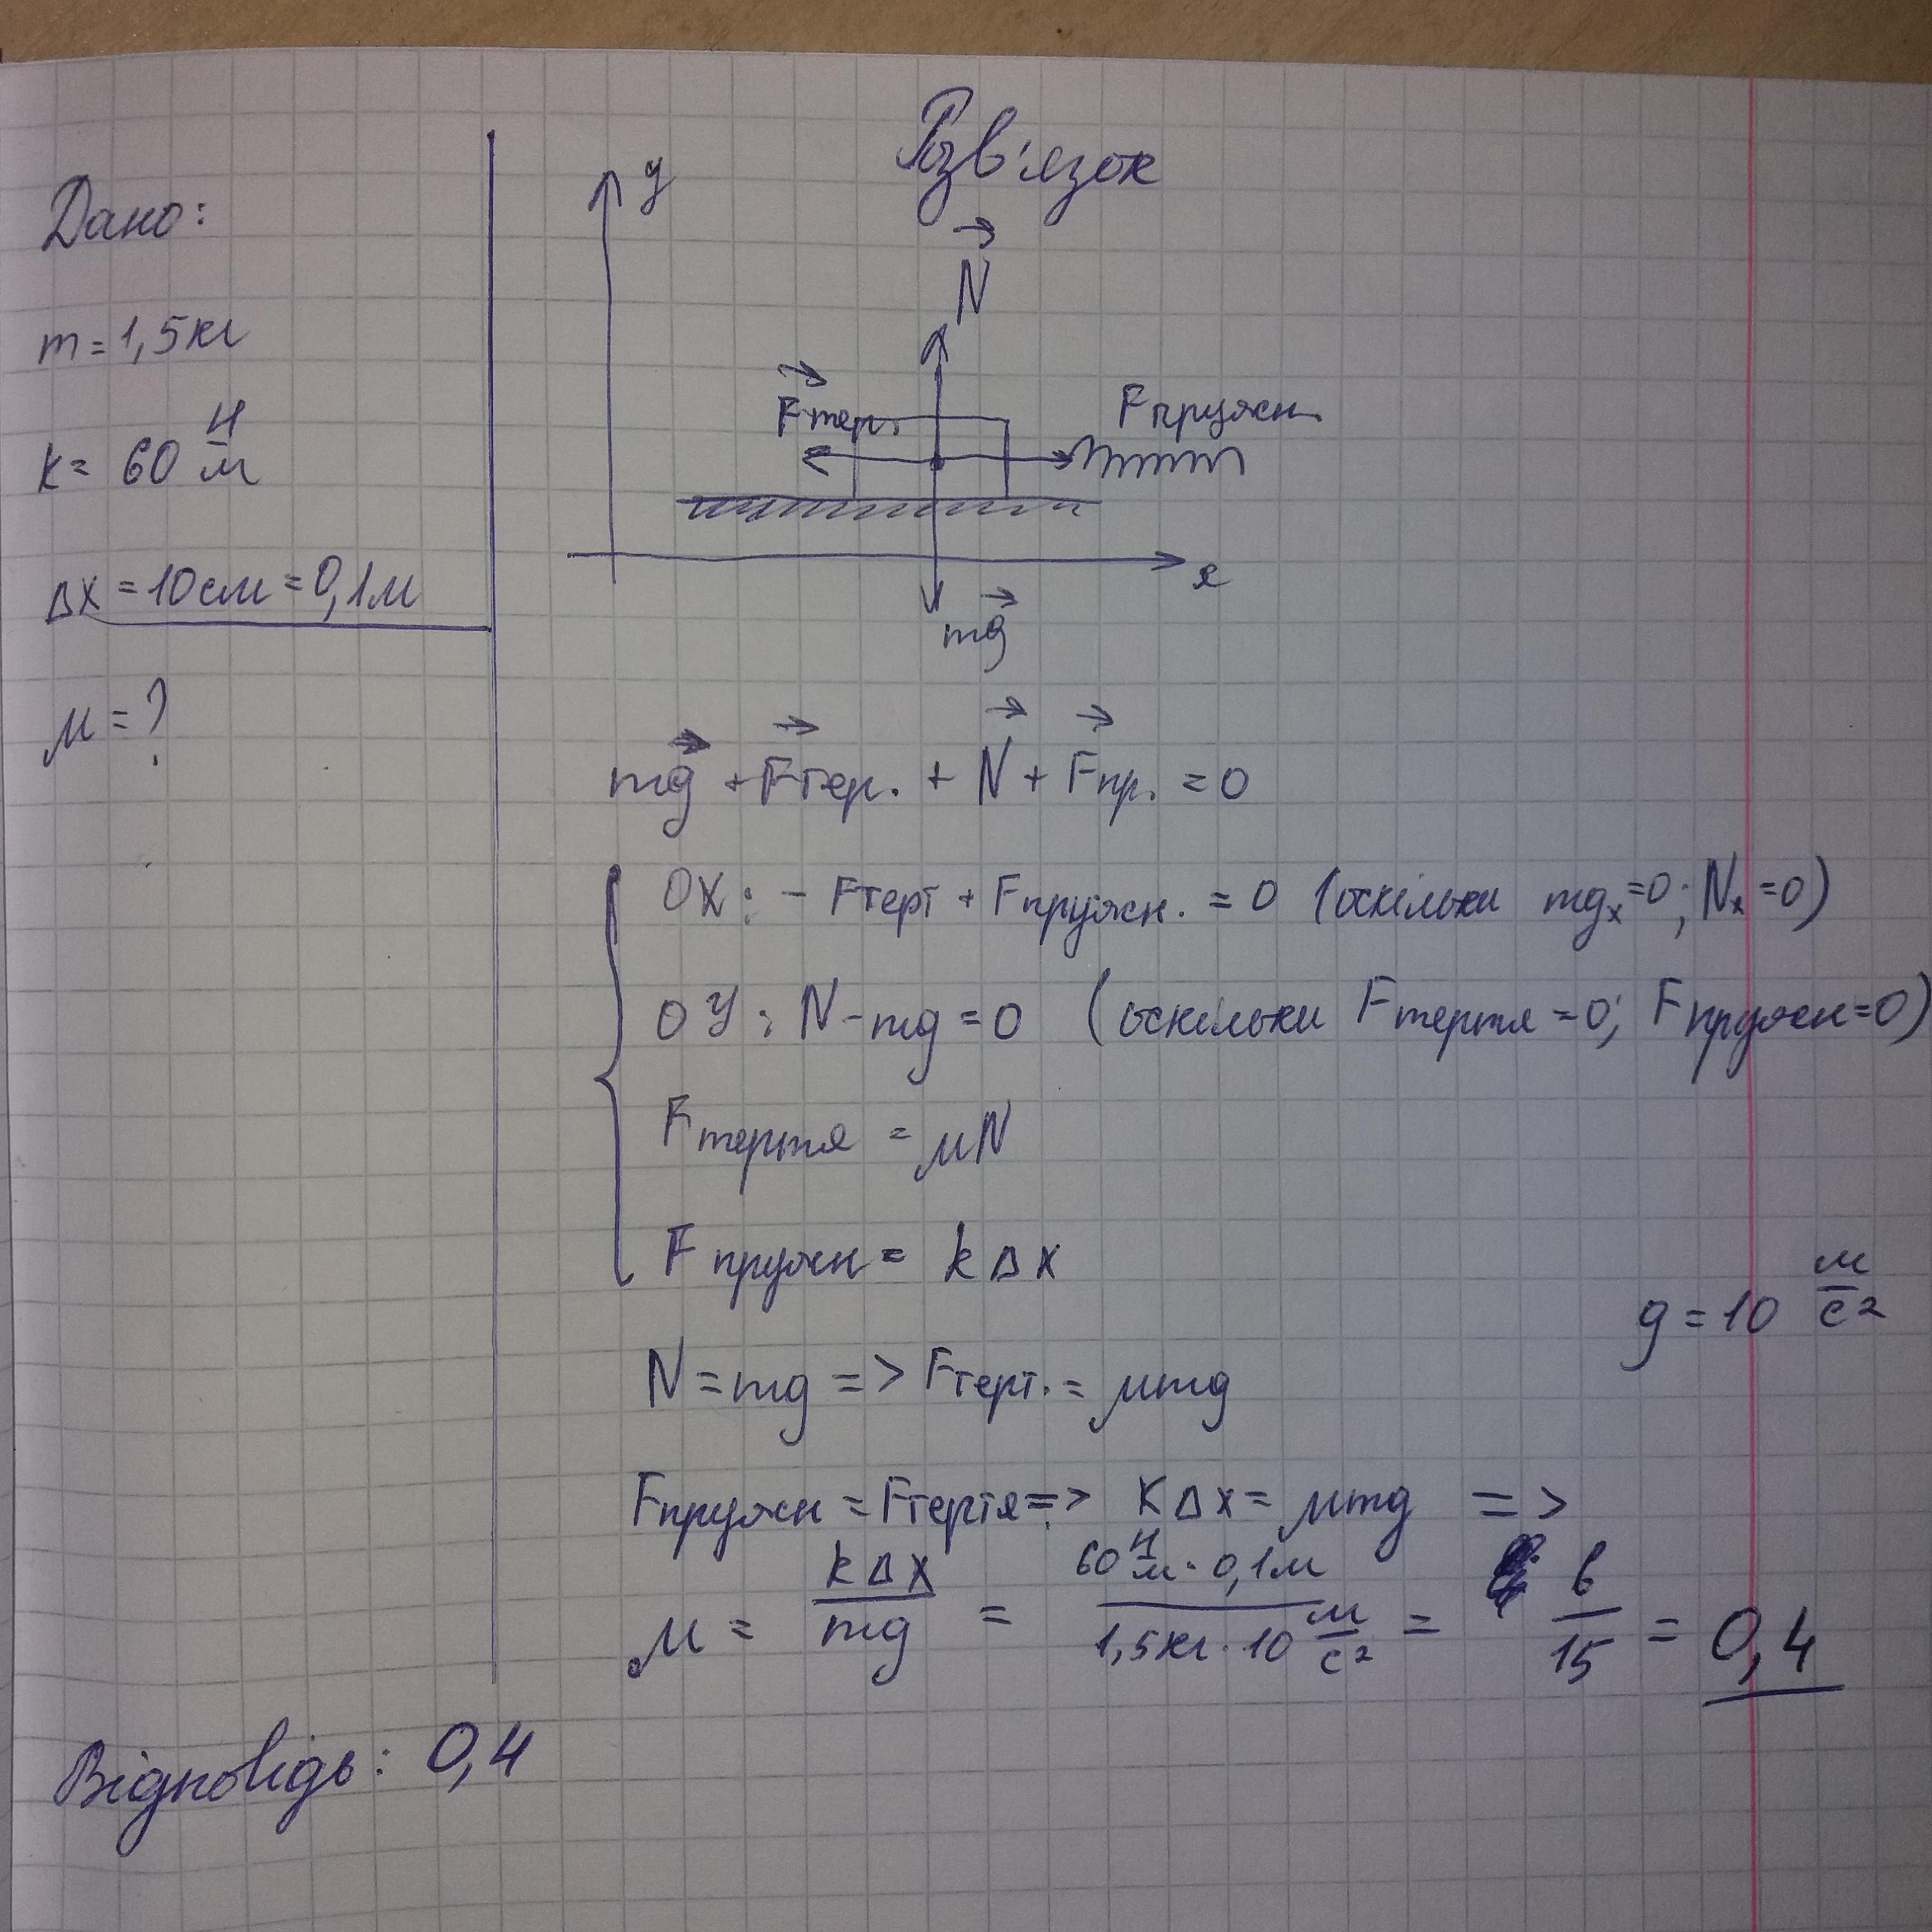 Розв'язок
Дано:
m = 1,5 кг
k = 60 Н/м
Δx = 10 см = 0,1 м
μ = ?
y
N
Fтер.
Fпружн
x
mg
mg + Fтер. + N + Fпр. = 0
OX: - Fтерт + Fпружн. = 0 (оскільки mgx = 0; Nx = 0)
OY: N - mg = 0 (оскільки Fтертя = 0; Fпружн = 0)
Fтертя = μN
Fпружн = kΔx
g = 10 м/с²
N = mg => Fтерт. = μmg
Fпружн = Fтертя => kΔx = μmg =>
μ = kΔx/mg = 60 Н/м · 0,1 м / 1,5 кг · 10 м/с² = 6/15 = 0,4
Відповідь: 0,4